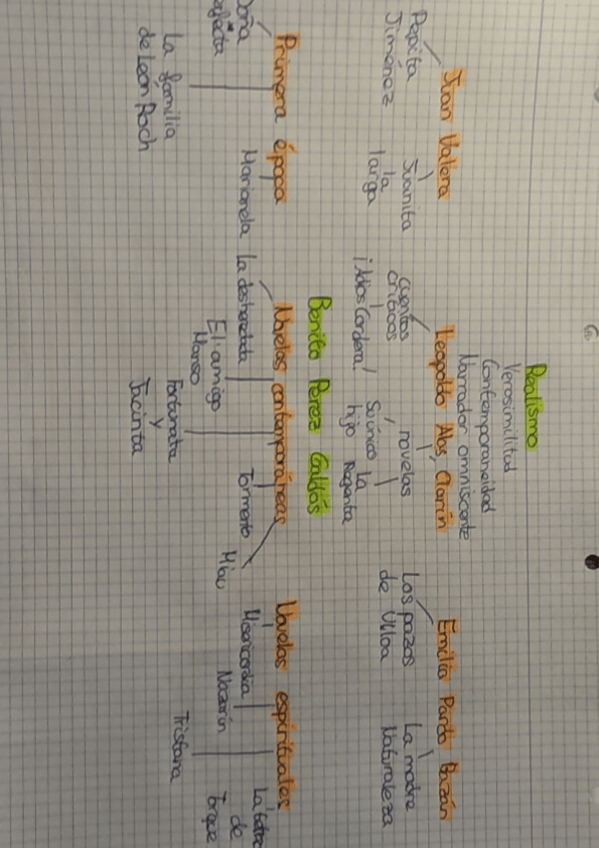 Realismo
Verosimilitud
Contemporaneidad
Narrador omnisciente
Juan Valera
Pepita
Jiménez
Juanita
la
larga
Leopoldo Alas, Clarín
Cuentos
críticos
¡Adios Cordera!
novelas
Su único
hijo
La
Regenta
Emilia Pardo Bazán
Los pazos
de Ulloa
La madre
Naturaleza
Benito Pérez Galdós
Primera época
Doña
Perfecta
La familia
de León Roch
Marianela
Novelas contemporáneas
La desheredada
El amigo
Manso
Fortunata
y
Jacinta
Tormento
Miau
Novelas espirituales
Misericordia
Nazarín
Tristana
de